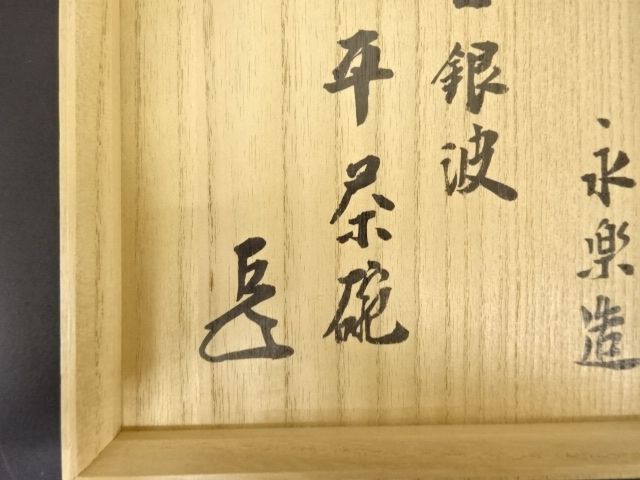 永楽造
銀波
平茶碗